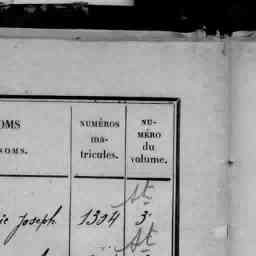 OMS
NOMS.
NUMÉROS
ma-
tricules.
NU-
MÉRO
du
volume.
ie Joseph 1394 3